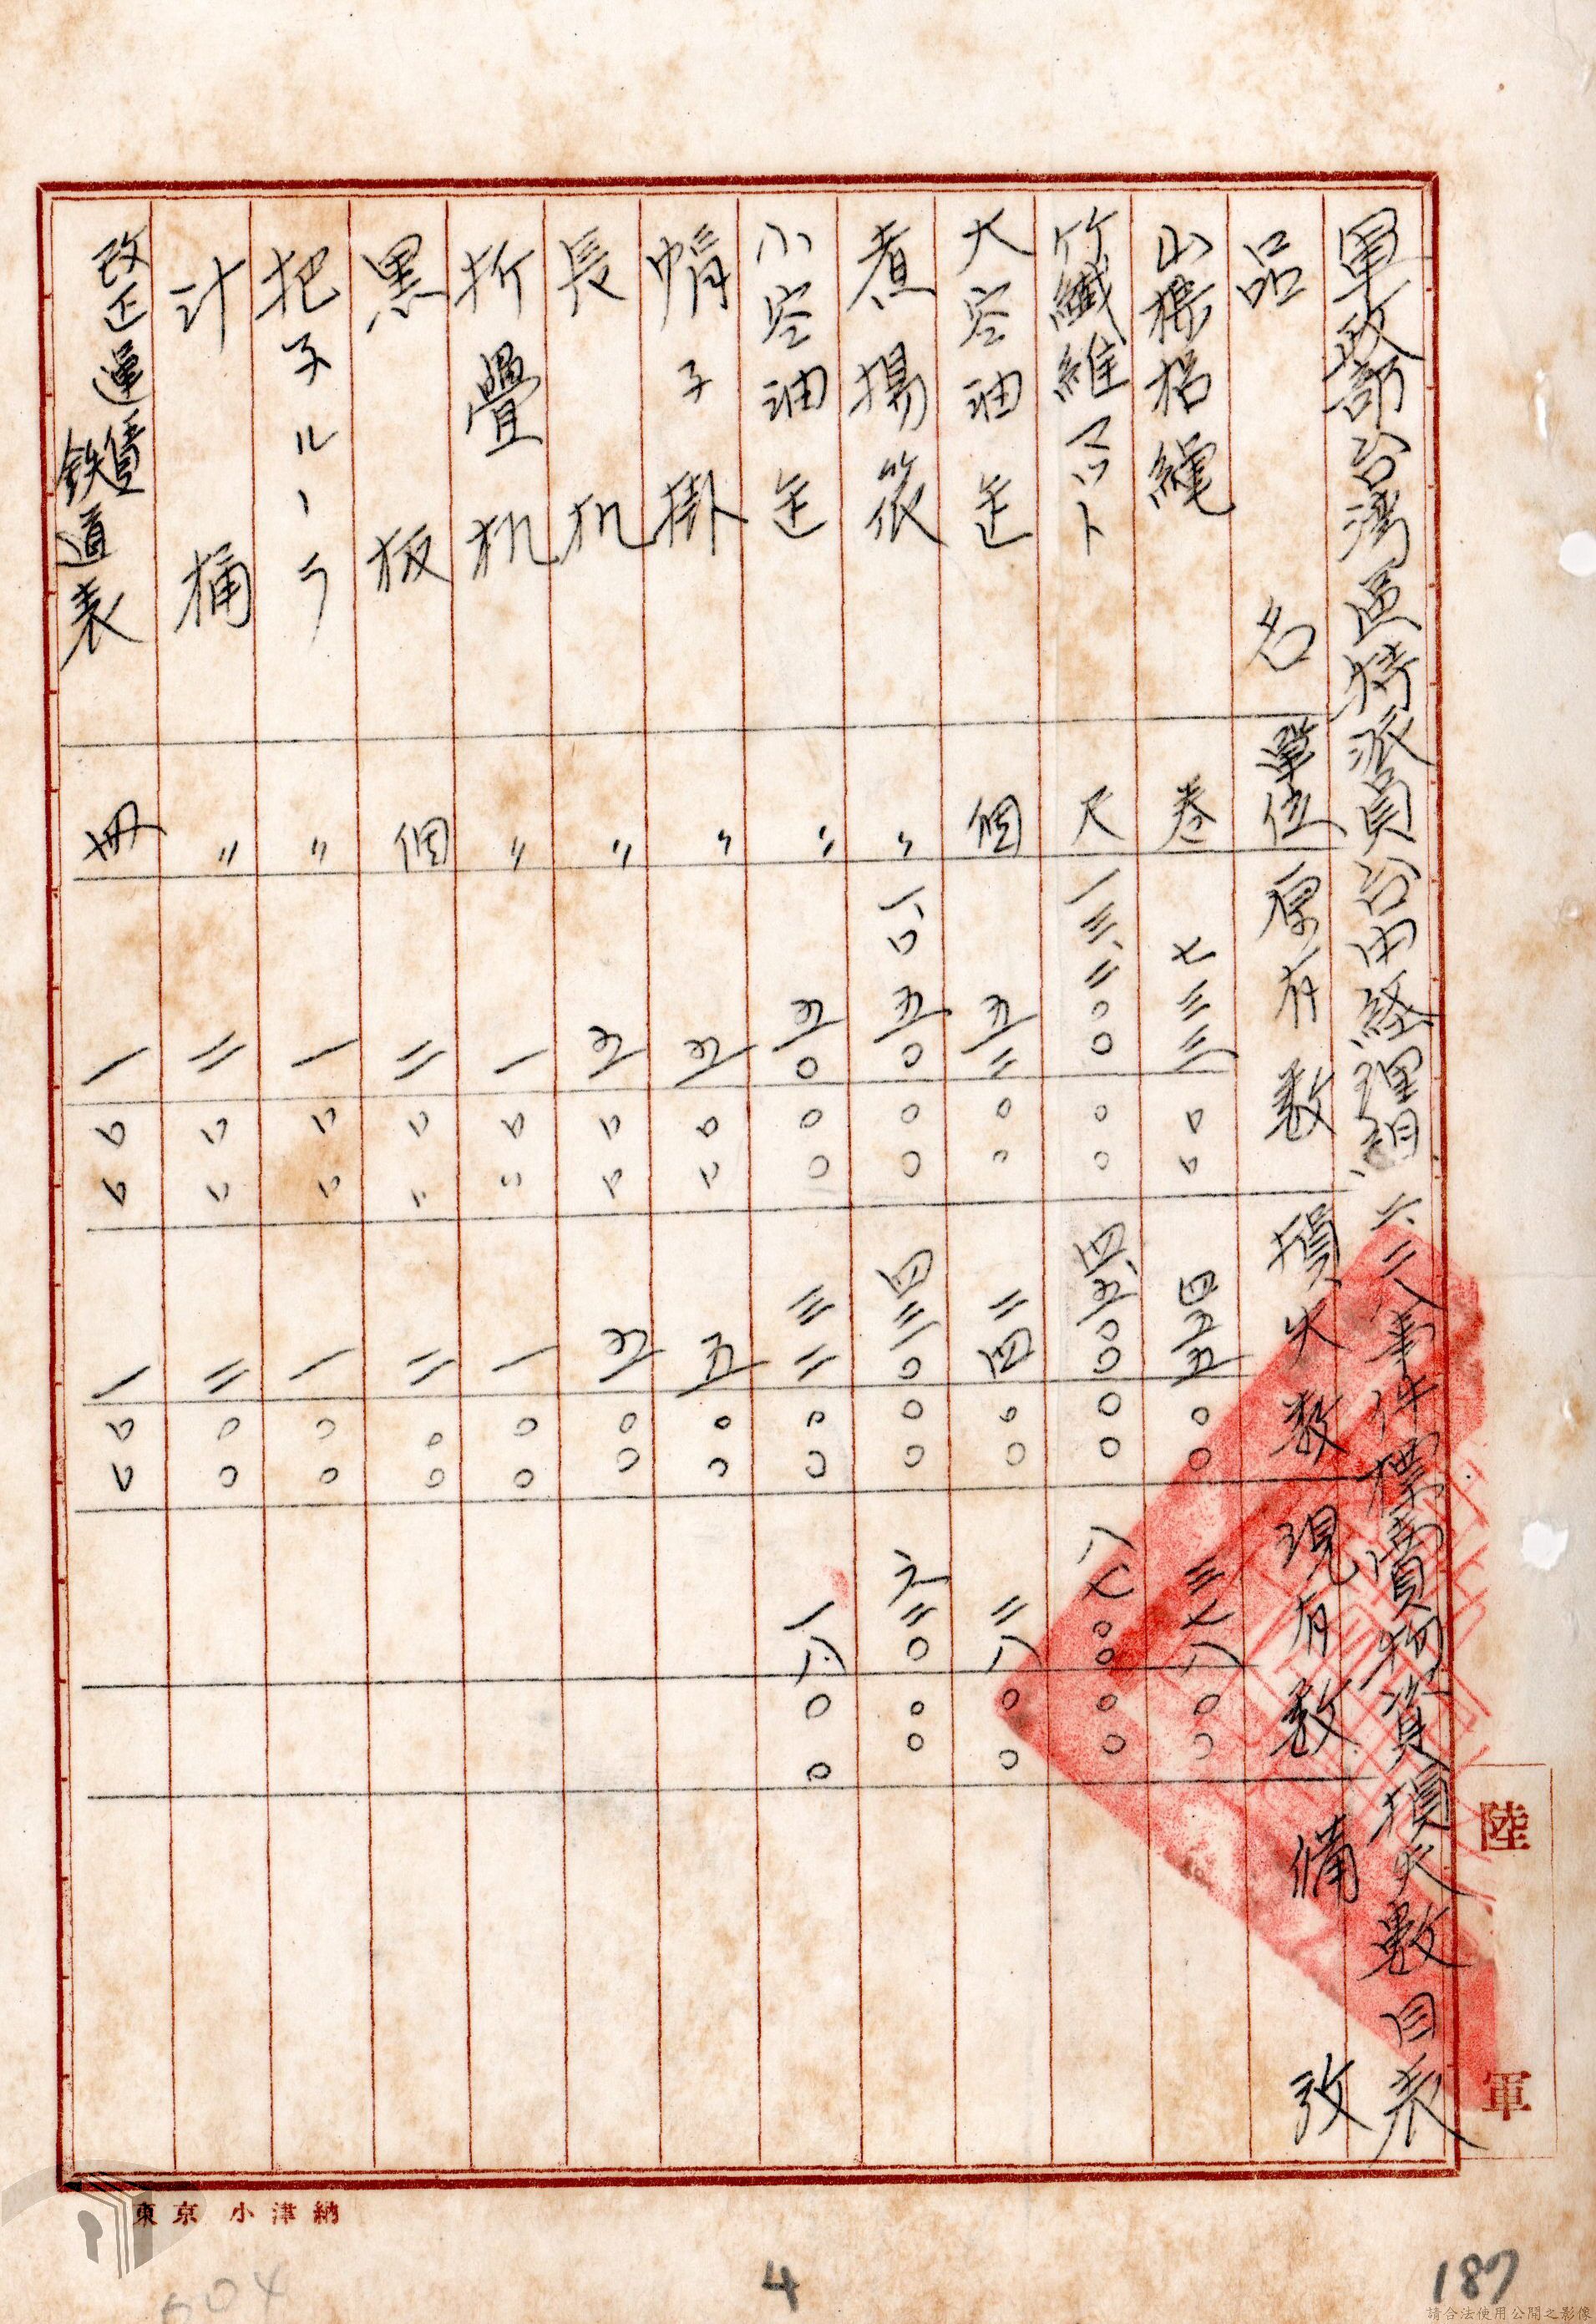 軍政部台湾區特派員公署経理組、六、二八事件標賣物資損失數目表
品名 單位 原有数 損失数 現有数 備攷
山棕梠縄 巻 七三三〇〇 四五五〇〇 三七八〇〇
竹纖維マット 尺 一三、二〇〇〇〇 四、五〇〇〇〇 八七〇〇〇〇
大空油缶 個 五二〇〇 二四〇〇 二八〇〇
煮揚笊 〃 一、〇五〇〇〇 四三〇〇〇 六二〇〇〇
小空油缶 〃 五〇〇〇 三二〇〇 一八〇〇
帽子掛 〃 五〇〇 五〇〇
長机 〃 五〇〇 五〇〇
折疊机 〃 一〇〇 一〇〇
黒板 個 二〇〇 二〇〇
把子ルーラ 〃 一〇〇 一〇〇
計桶 〃 二〇〇 二〇〇
改正運賃鉄道表 冊 一〇〇 一〇〇
陸軍
東京 小津納
504
4
187
請合法使用公開之影像